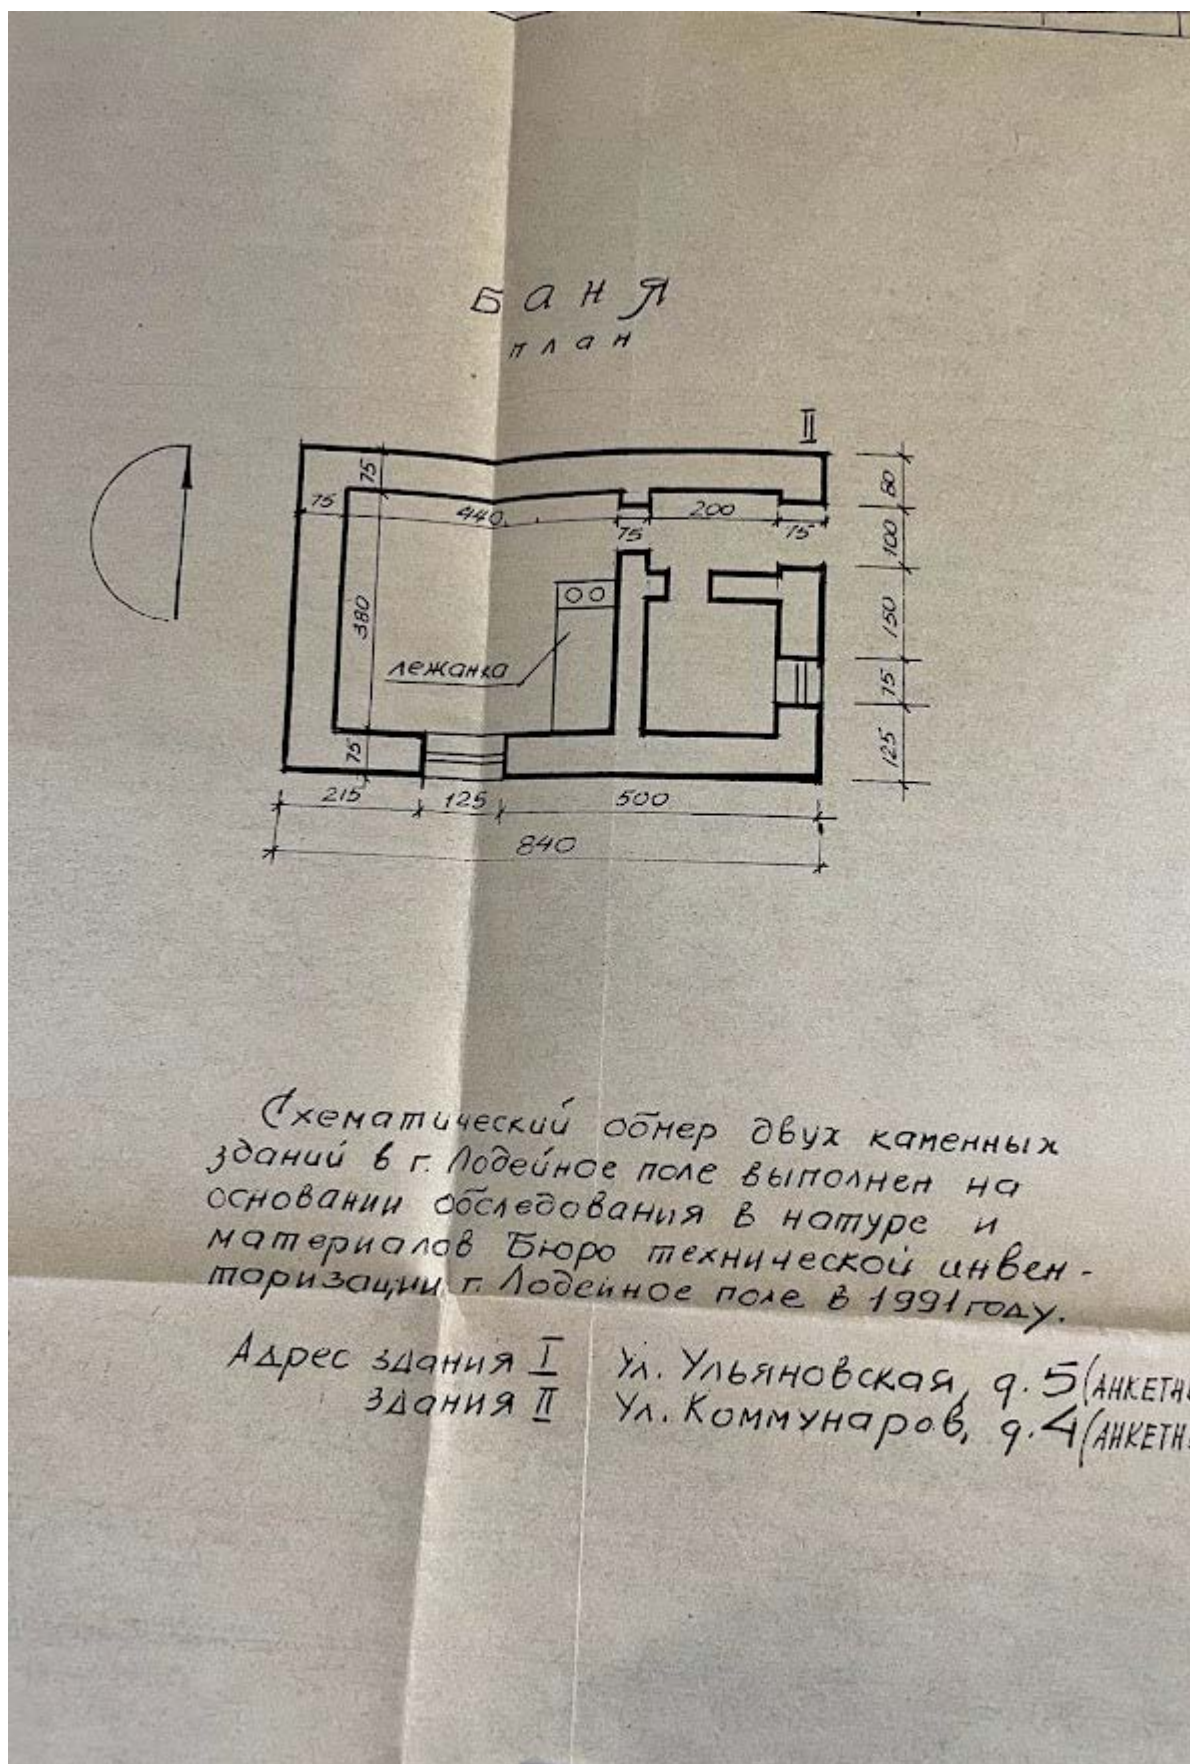 Баня
план
II
75
75
440
75
200
75
80
100
150
75
125
380
лежанка
75
215
125
500
840
Схематический обмер двух каменных
зданий в г. Лодейное поле выполнен на
основании обследования в натуре и
материалов Бюро технической инвен-
торизации г. Лодейное поле в 1991 году.
Адрес здания I Ул. Ульяновская, д. 5 (АНКЕТН
здания II Ул. Коммунаров, д. 4 (АНКЕТН